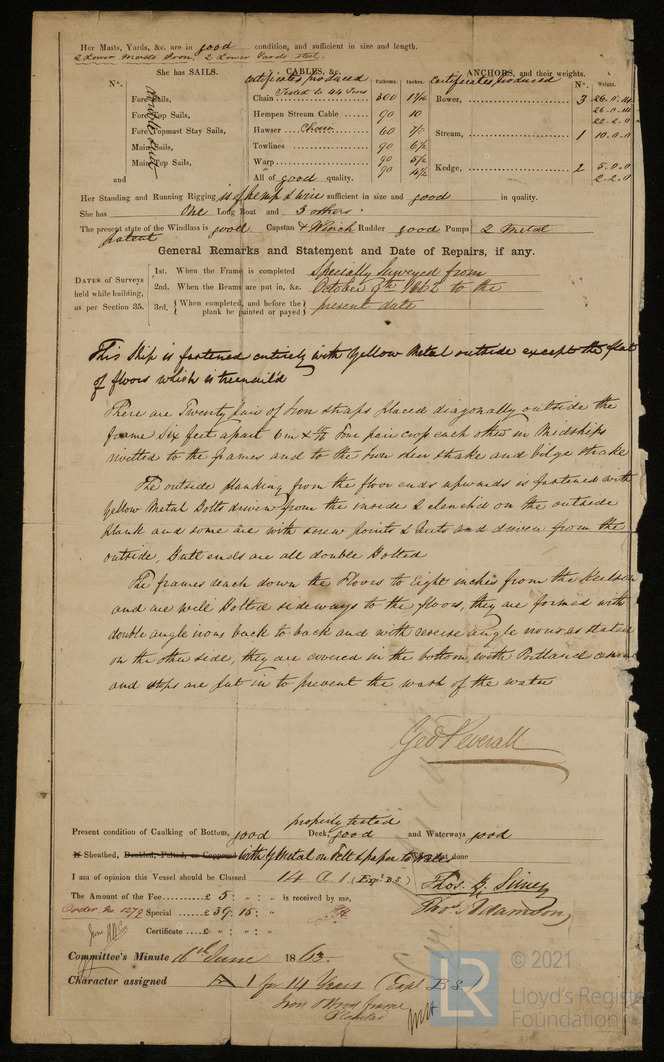 Her Masts, Yards, &c. are in good condition, and sufficient in size and length.
2 Lower Masts Iron, 2 Lower Yards Steel.
She has SAILS. CABLES, &c. ANCHORS, and their weights.
Certificates produced Certificates produced
N°. Fathoms. Inches. N°. Weights.
Fore Sails, Chain Tested to 44 Tons 300 Bower, 3 26.0.14
Fore Top Sails, Hempen Stream Cable 90 10 26.0.14
22.2.0
Fore Topmast Stay Sails, Hawser Chain 60 Stream, 1 10.0.0
Main Sails, Towlines 90 6½
Main Top Sails, Warp 90 5½ Kedge, 2 5.0.0
and All of good quality. 90 4½ 2.2.0
Her Standing and Running Rigging is of hemp & wire sufficient in size and good in quality.
She has One Long Boat and 3 others.
The present state of the Windlass is good Capstan & Winch Rudder good Pumps 2 Metal
patent
General Remarks and Statement and Date of Repairs, if any.
DATES of Surveys held while building, as per Section 35.
1st. When the Frame is completed Specially Surveyed from
2nd. When the Beams are put in, &c. October 9th 1862 to the
3rd. { When completed, and before the plank be painted or payed } present date
This Ship is fastened entirely with Yellow Metal outside except the flat
of floors which is treenail'd
There are Twenty pair of Iron straps placed diagonally outside the
frame Six feet apart 6 in x Four pair each other in Midships
rivetted to the frames and to the Iron strake and bilge strake
The outside planking from the floor ends upwards is fastened with
Yellow Metal Bolts driven from the inside & clench'd on the outside
plank and some are with screw points & Nuts and driven from the
outside, Butt ends are all double Bolted
The frames reach down the Floors to Eight inches from the Keelson
and are well Bolted sideways to the floors, they are formed with
double angle irons back to back and with reverse angle irons as stated
on the other side, they are covered in the bottom with Portland cement
and stops are put in to prevent the wash of the water
Geo Peverall
properly tested
Present condition of Caulking of Bottom, good Deck, good and Waterways good
Is Sheathed, Doubled, Felted, or Coppered with Y Metal on Felt & paper to done
I am of opinion this Vessel should be Classed 14 A 1. (Exp. B.S.)
The Amount of the Fee......£ 5 : „ : „ is received by me,
Order No. 1279 Special ......£ 39 : 15 : „
Certificate ...£ „ : „ : „
Committee's Minute 16th June 1863.
Character assigned A 1 for 14 Years (Exp B.S.)
Iron & Wood frame
Planked
© 2021
LR
Lloyd's Register
Foundation